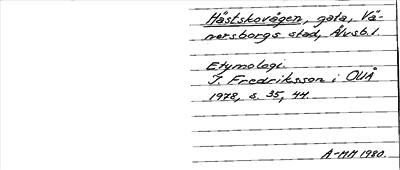 Hästskovägen, gata, Vä-
nersborgs stad, Älvsb.l.
Etymologi.
I. Fredriksson i OUÅ
1978, s. 35, 44.
A-MM 1980.